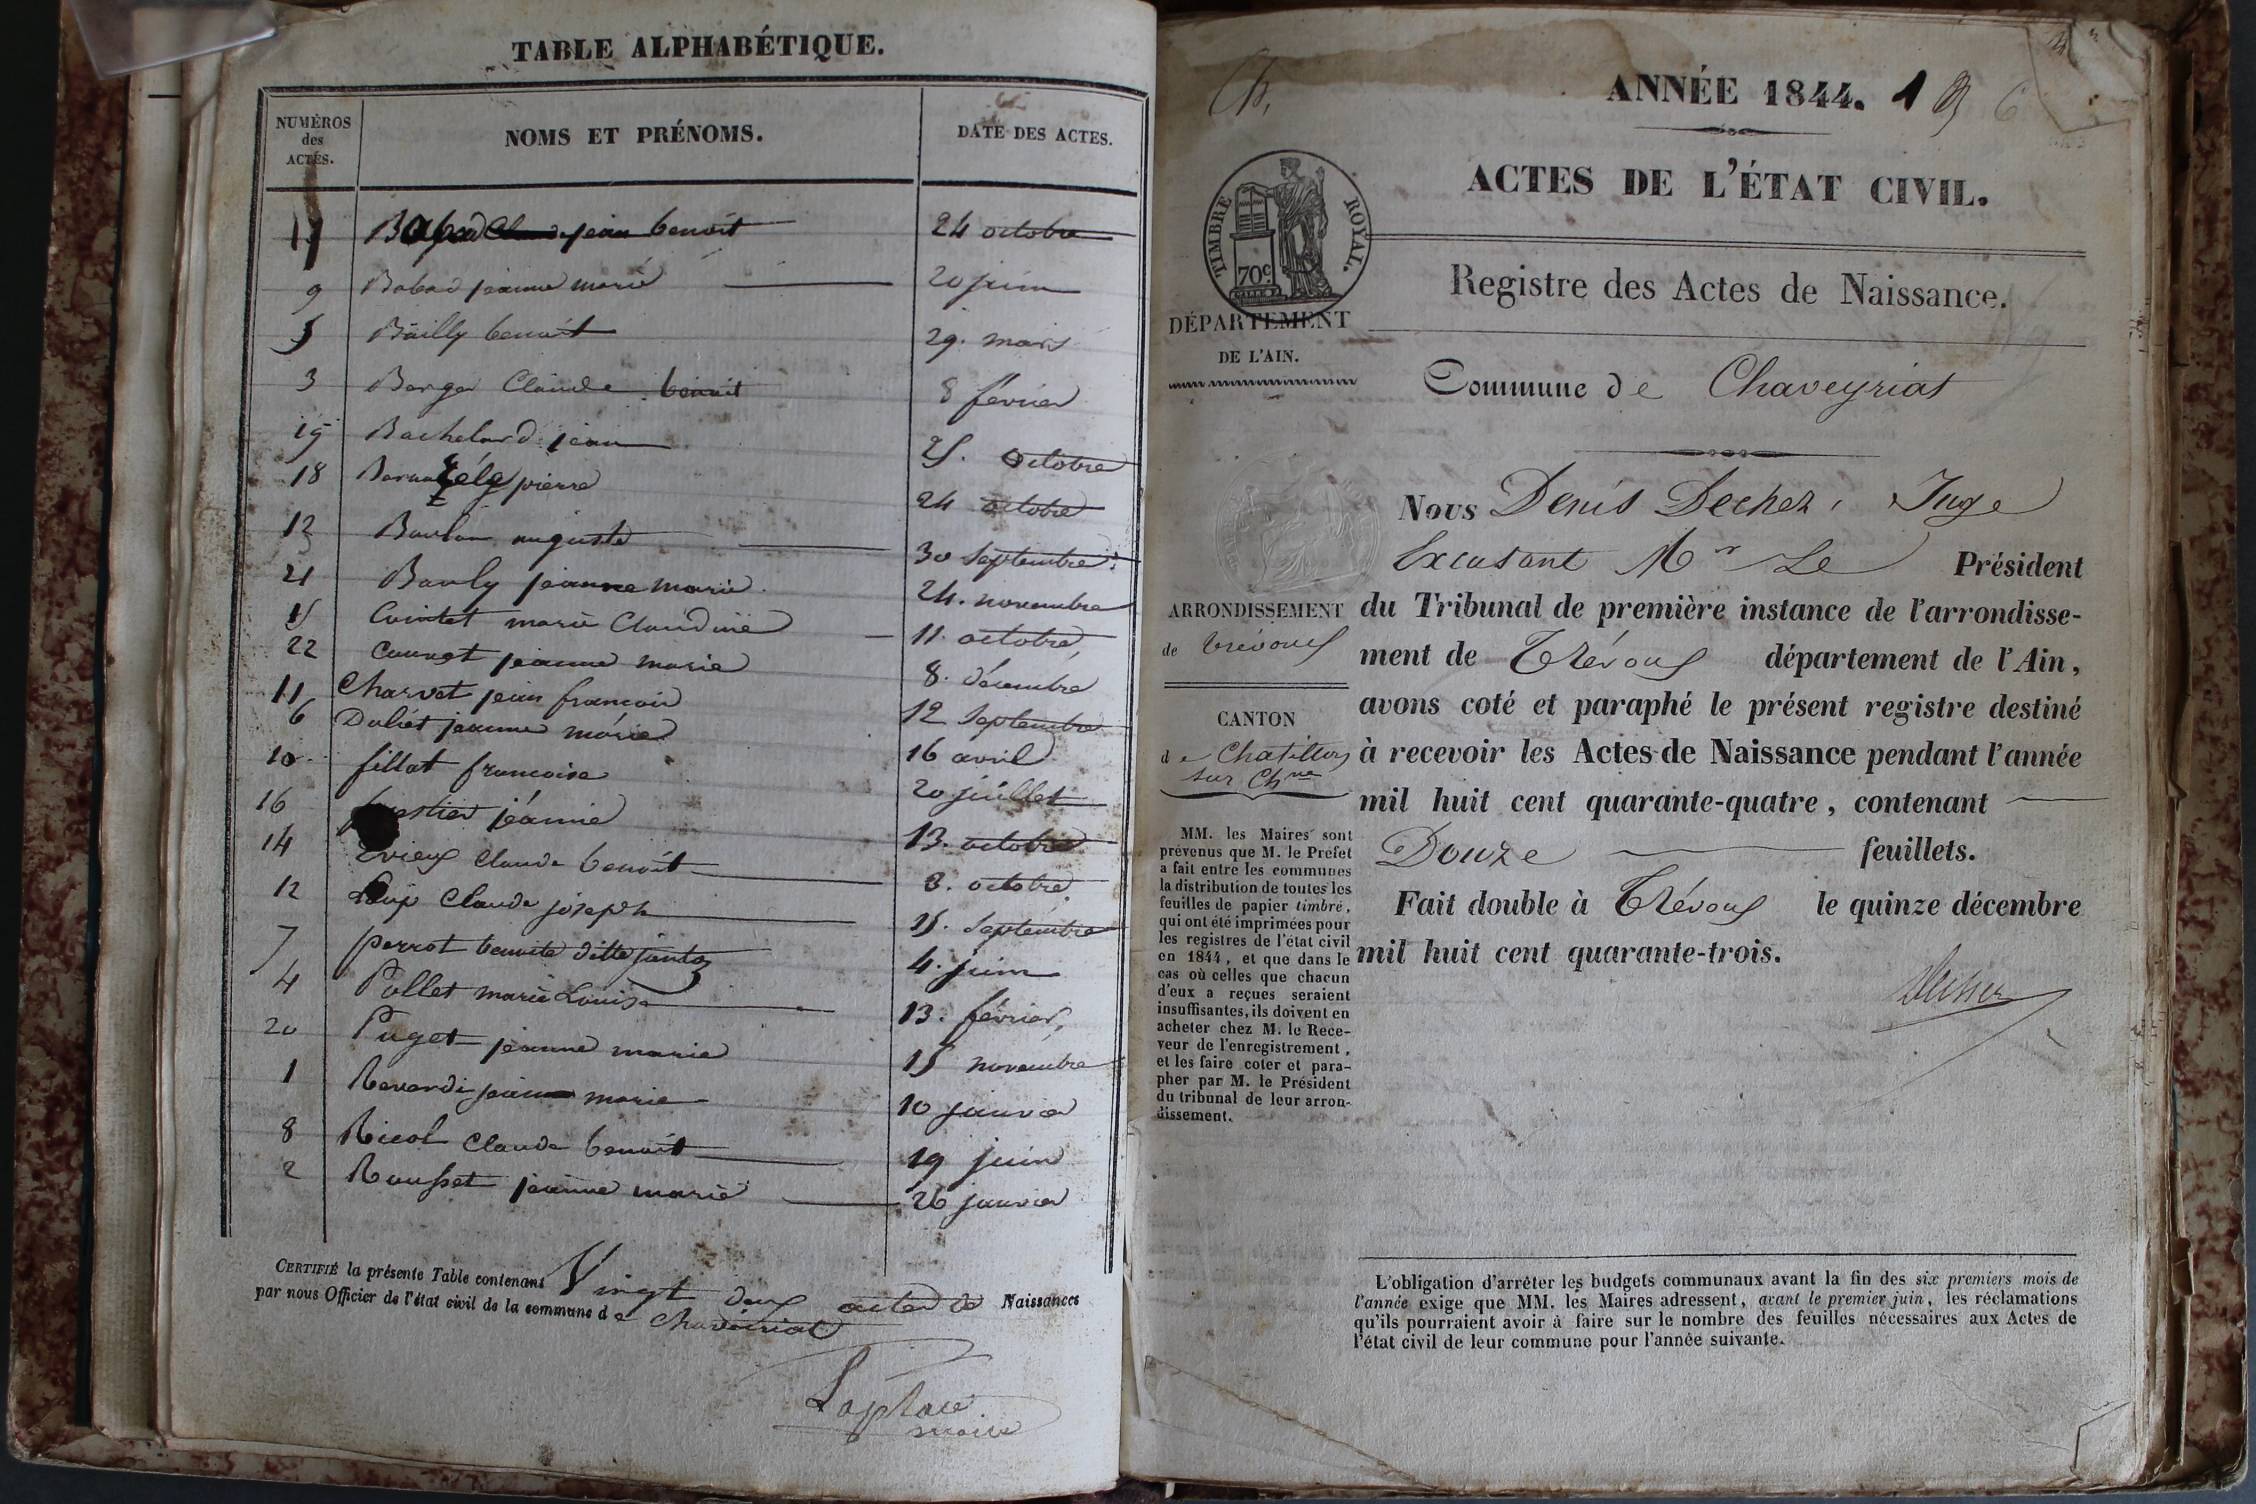 TABLE ALPHABÉTIQUE.
NUMÉROS
des
ACTES.
NOMS ET PRÉNOMS.
DATE DES ACTES.
17 jean benoit 24 octobre
9 Babad jeanne marie 20 juin
5 Bailly benoit 29. mars
3 Berger Claude benoit 8 février
19 Bachelard jean 25. octobre
18 pierre 24 octobre
12 Boulon auguste 30 septembre
21 Bouly jeanne marie 24. novembre
15 Cointet marie Claudine 11. octobre
22 Counet jeanne marie 8. décembre
11 Charvet jean francois 12 septembre
6 Duliet jeanne marie 16 avril
10 fillot francoise 20 juillet
16 jéanne 13. octobre
14 Evieux claude benoit 3. octobre
12 Loup Claude joseph 15. septembre
7 perrot benoite ditte 4. juin
4 Pollet marie Louise 13. février,
20 Puget jeanne marie 15 novembre
1 Revardi jeanne marie 10 janvier
8 Nicol Claude benoit 19 juin
2 Rousset jeanne marie 26 janvier
CERTIFIÉ la présente Table contenant Vingt deux actes de Naissances
par nous Officier de l'état civil de la commune de Chaveiriat
Laplace
maire
Ch.
ANNÉE 1844. 1
ACTES DE L'ÉTAT CIVIL.
TIMBRE ROYAL.
70c.
Registre des Actes de Naissance.
DÉPARTEMENT
DE L'AIN.
Commune de Chaveyriat
Nous Denis Dechez, Juge
Excusant Mr Le Président
du Tribunal de première instance de l'arrondisse-
ment de Trévoux département de l'Ain,
avons coté et paraphé le présent registre destiné
à recevoir les Actes de Naissance pendant l'année
mil huit cent quarante-quatre, contenant
Douze feuillets.
Fait double à Trévoux le quinze décembre
mil huit cent quarante-trois.
Dechez
ARRONDISSEMENT
de Trévoux
CANTON
de Chatillon
sur Chne
MM. les Maires sont
prévenus que M. le Préfet
a fait entre les communes
la distribution de toutes les
feuilles de papier timbré,
qui ont été imprimées pour
les registres de l'état civil
en 1844, et que dans le
cas où celles que chacun
d'eux a reçues seraient
insuffisantes, ils doivent en
acheter chez M. le Rece-
veur de l'enregistrement,
et les faire coter et para-
pher par M. le Président
du tribunal de leur arron-
dissement.
L'obligation d'arrêter les budgets communaux avant la fin des six premiers mois de
l'année exige que MM. les Maires adressent, avant le premier juin, les réclamations
qu'ils pourraient avoir à faire sur le nombre des feuilles nécessaires aux Actes de
l'état civil de leur commune pour l'année suivante.